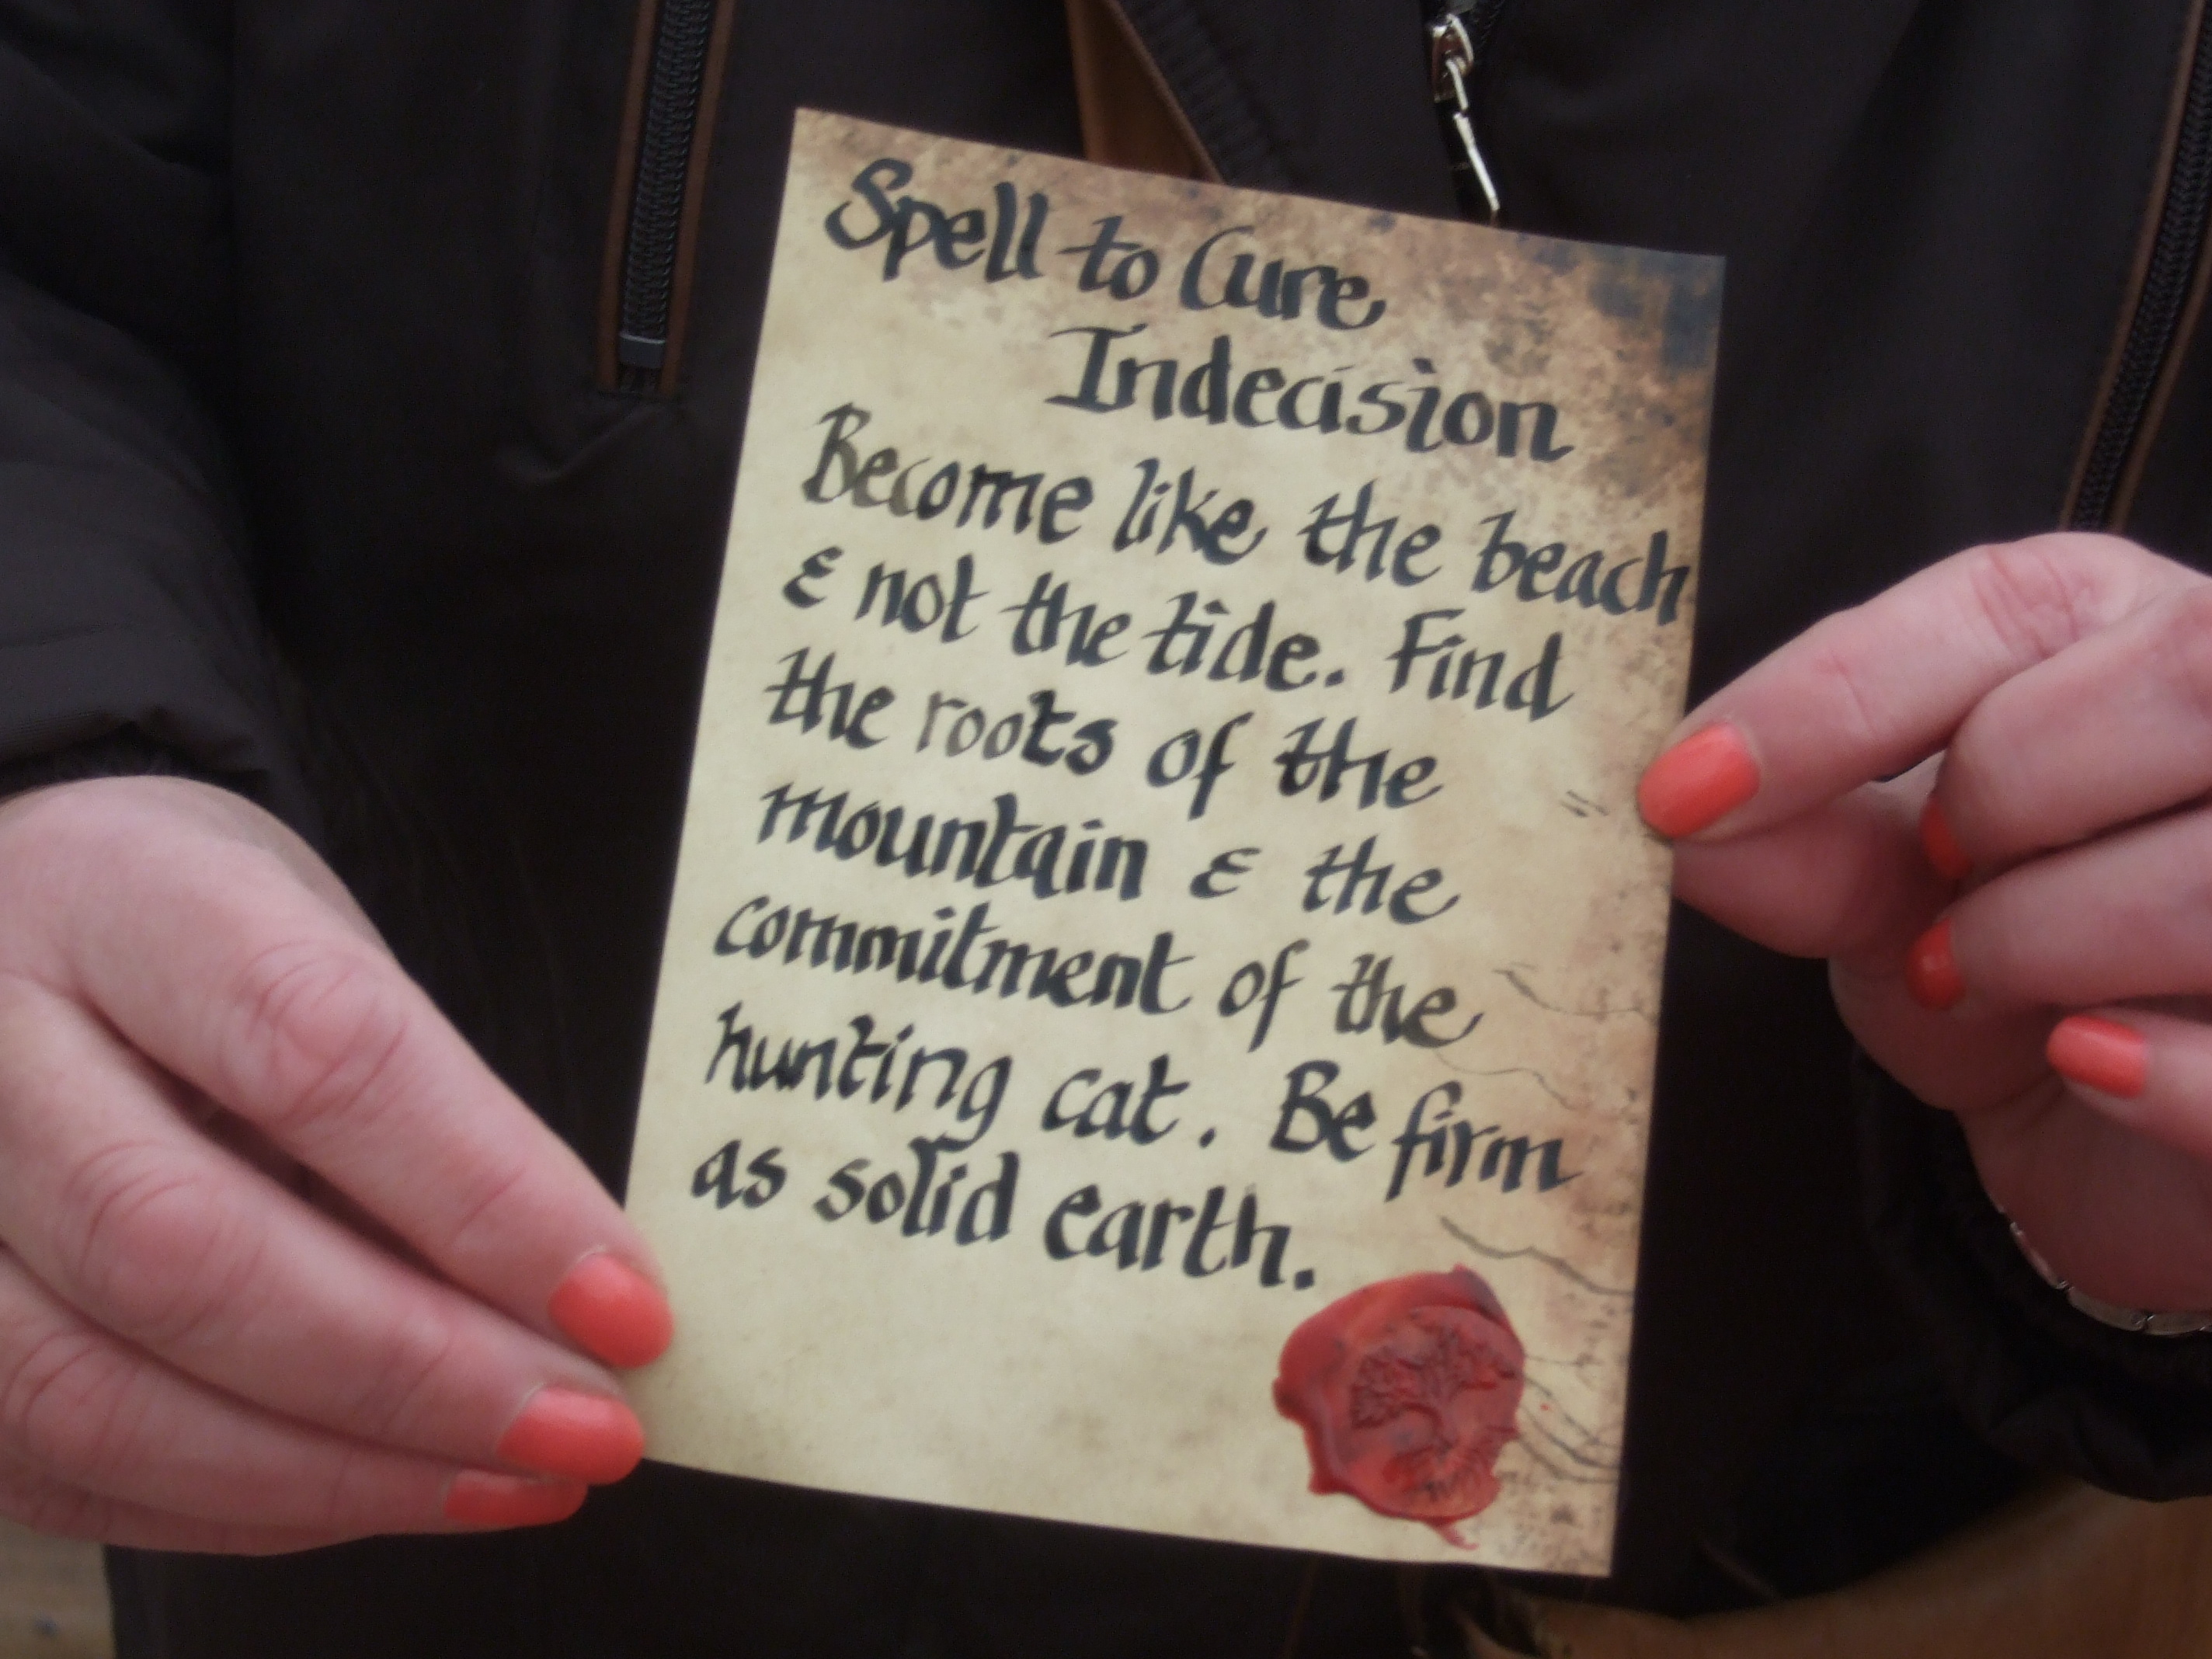 Spell to Cure
Indecision
Become like the beach
& not the tide. Find
the roots of the
mountain & the
commitment of the
hunting cat. Be firm
as solid earth.